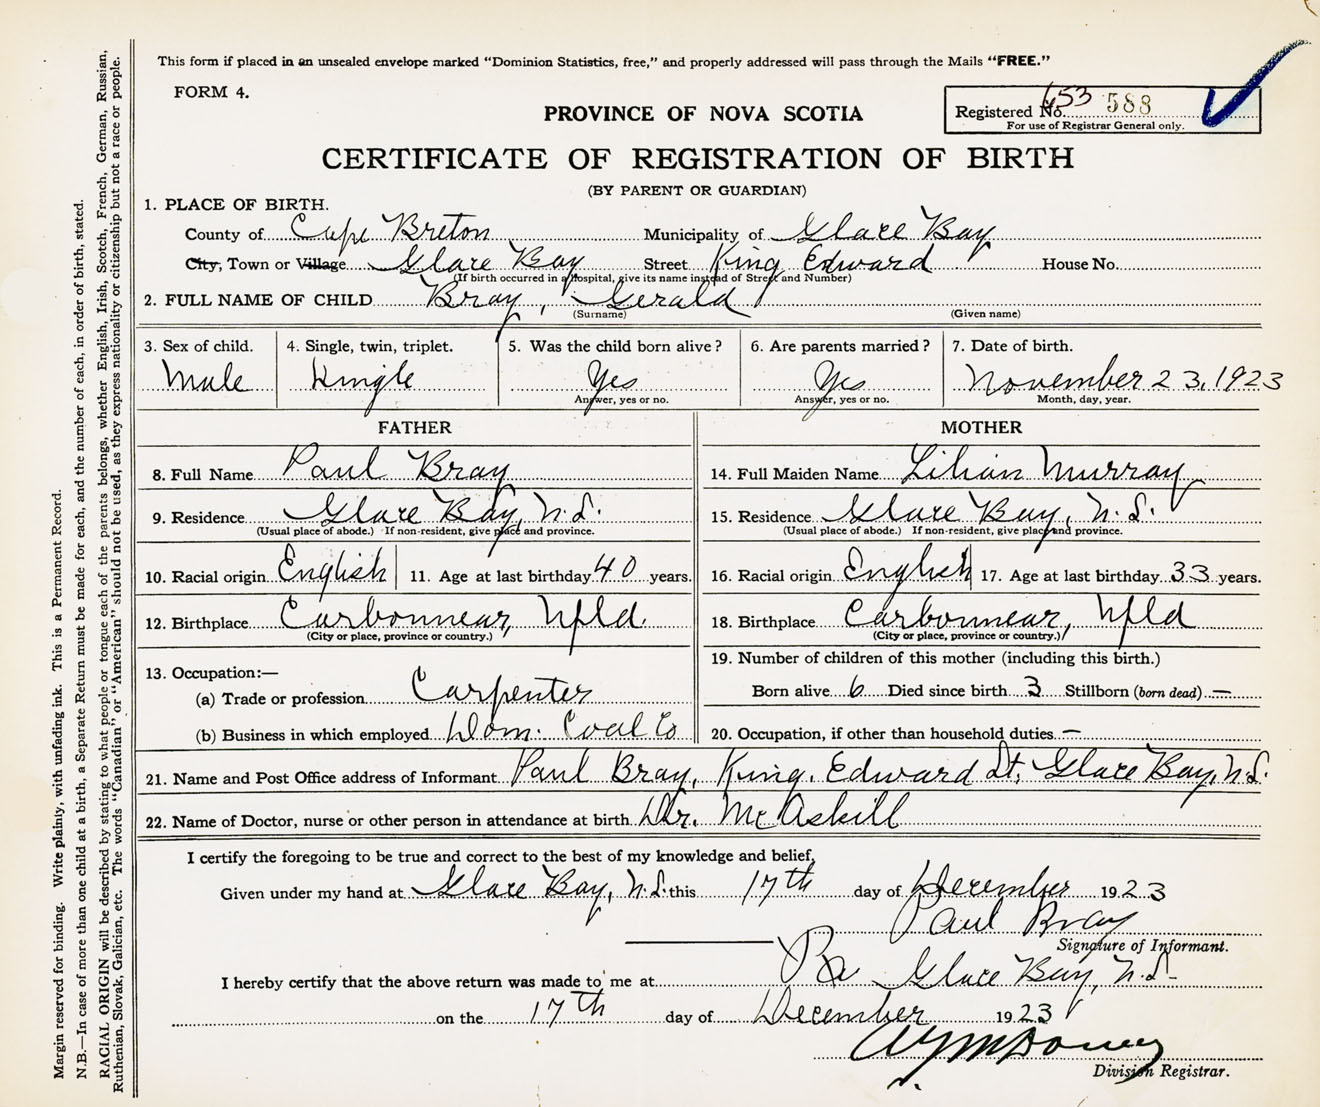 This form if placed in an unsealed envelope marked "Dominion Statistics, free," and properly addressed will pass through the Mails "FREE."
FORM 4.
Registered No. 653 588
For use of Registrar General only.
PROVINCE OF NOVA SCOTIA
CERTIFICATE OF REGISTRATION OF BIRTH
(BY PARENT OR GUARDIAN)
1. PLACE OF BIRTH.
County of Cape Breton Municipality of Glace Bay
City, Town or Village Glace Bay Street King Edward House No.
(If birth occurred in a hospital, give its name instead of Street and Number)
2. FULL NAME OF CHILD Bray, Gerald
(Surname) (Given name)
3. Sex of child. 4. Single, twin, triplet. 5. Was the child born alive? 6. Are parents married? 7. Date of birth.
Male Single Yes Yes November 23, 1923
Answer, yes or no. Answer, yes or no. Month, day, year.
FATHER MOTHER
8. Full Name Paul Bray 14. Full Maiden Name Lilian Murray
9. Residence Glace Bay, N.S. 15. Residence Glace Bay, N.S.
(Usual place of abode.) If non-resident, give place and province. (Usual place of abode.) If non-resident, give place and province.
10. Racial origin English 11. Age at last birthday 40 years. 16. Racial origin English 17. Age at last birthday 33 years.
12. Birthplace Carbonnear, Nfld. 18. Birthplace Carbonnear, Nfld
(City or place, province or country.) (City or place, province or country.)
13. Occupation:— 19. Number of children of this mother (including this birth.)
(a) Trade or profession Carpenter Born alive 6 Died since birth 3 Stillborn (born dead) —
(b) Business in which employed Dom. Coal Co 20. Occupation, if other than household duties —
21. Name and Post Office address of Informant Paul Bray, King. Edward St, Glace Bay, N.S.
22. Name of Doctor, nurse or other person in attendance at birth Dr. McAskill
I certify the foregoing to be true and correct to the best of my knowledge and belief,
Given under my hand at Glace Bay, N.S. this 17th day of December 1923
Paul Bray
Signature of Informant.
I hereby certify that the above return was made to me at Glace Bay, N.S.
on the 17th day of December 1923
Division Registrar.
Margin reserved for binding. Write plainly, with unfading ink. This is a Permanent Record.
N.B.—In case of more than one child at a birth, a Separate Return must be made for each, and the number of each, in order of birth, stated.
RACIAL ORIGIN will be described by stating to what people or tongue each of the parents belongs, whether English, Irish, Scotch, French, German, Russian,
Ruthenian, Slovak, Galician, etc. The words "Canadian" or "American" should not be used, as they express nationality or citizenship but not a race or people.